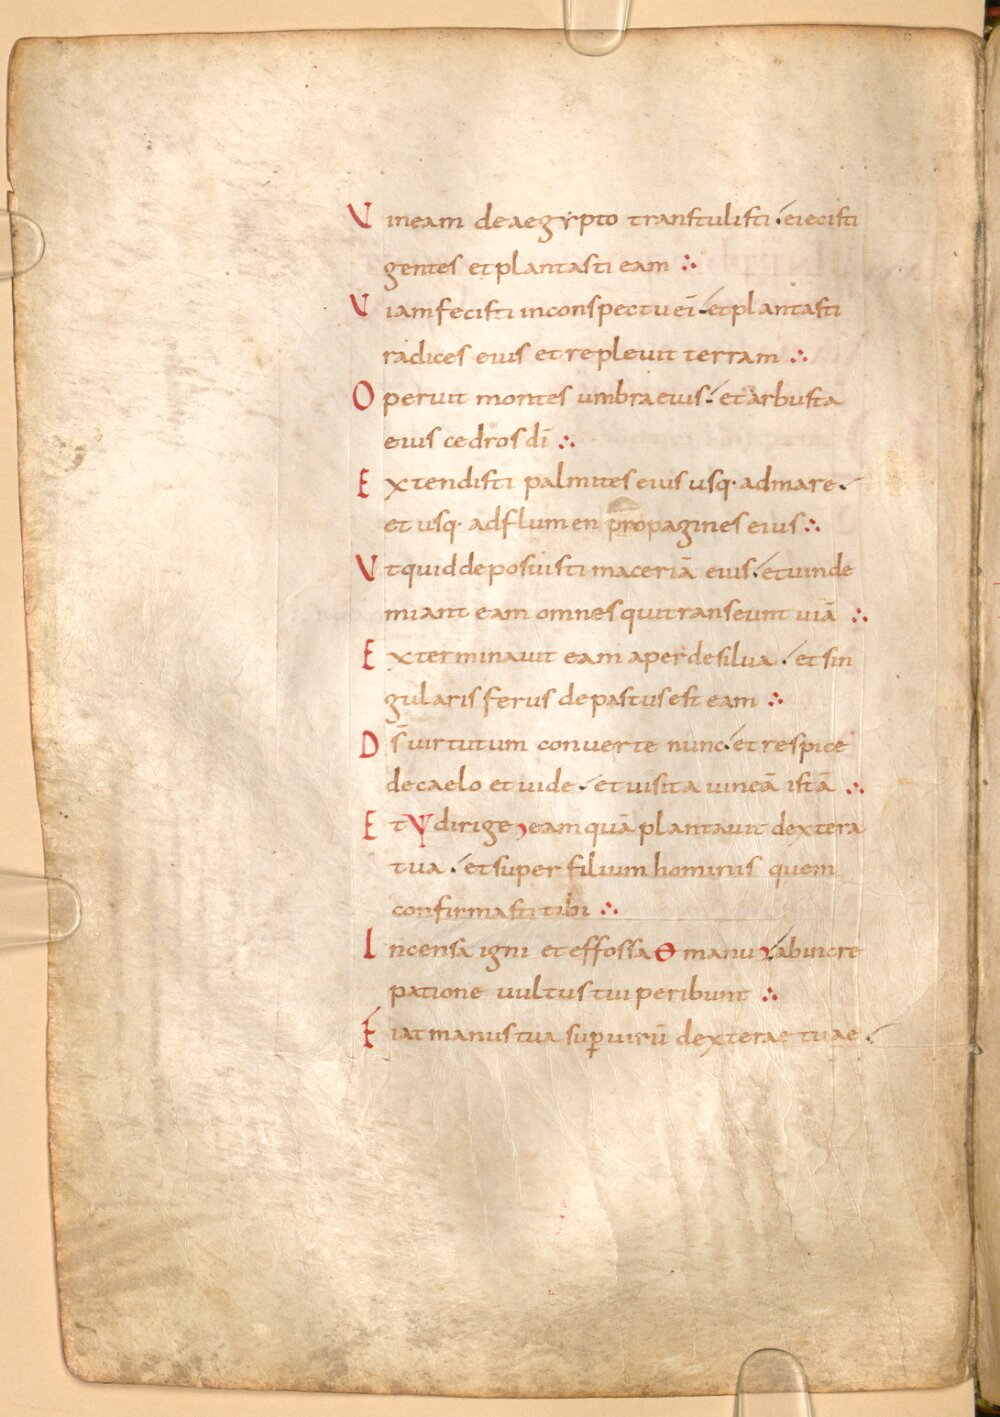 Vineam de aegypto transtulisti eiecisti
gentes et plantasti eam ∴
Viam fecisti in conspectu ei̅ et plantasti
radices eius et repleuit terram ∴
Operuit montes umbra eius et arbusta
eius cedros di̅ ∴
Extendisti palmites eius usq· ad mare
et usq· ad flumen propagines eius ∴
Vt quid deposuisti maceriā eius et uinde
miant eam omnes qui transeunt uiā ∴
Exterminauit eam aper de silua et sin
gularis ferus depastus est eam ∴
Ds̅ uirtutum conuerte nunc et respice
de caelo et uide et uisita uineā istā ∴
Et ÷ dirige : eam quā plantauit dextera
tua et super filium hominis quem
confirmasti tibi ∴
Incensa igni et effossa manu ab incre
patione uultus tui peribunt ∴
Fiat manus tua sup̱ uirū dexterae tuae